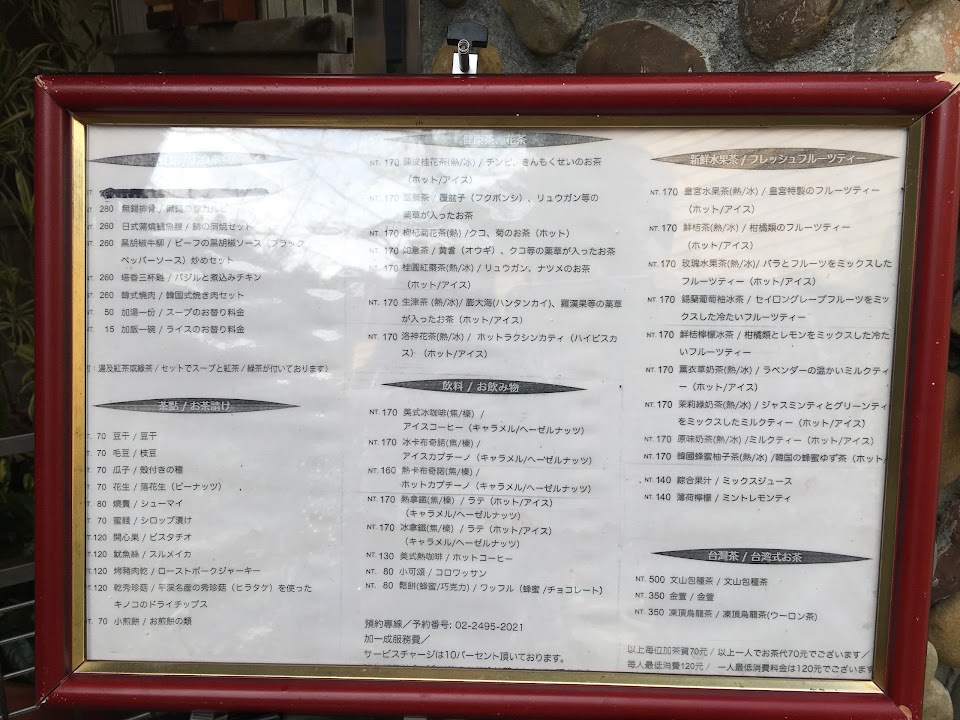 NT. 280 無錫排骨 /
260 日式蒲燒鯛魚腹 / 鯛の蒲焼セット
260 黑胡椒牛柳 / ビーフの黒胡椒ソース（ブラック
ペッパーソース）炒めセット
NT. 260 塔香三杯雞 / バジルと煮込みチキン
NT. 260 韓式燒肉 / 韓国式焼き肉セット
50 加湯一份 / スープのお替り料金
15 加飯一碗 / ライスのお替り料金
湯及紅茶或綠茶 / セットでスープと紅茶 / 緑茶が付いております）
茶點 / お茶請け
70 豆干 / 豆干
70 毛豆 / 枝豆
70 瓜子 / 殻付きの種
70 花生 / 落花生（ピーナッツ）
80 燒賣 / シューマイ
70 蜜餞 / シロップ漬け
120 開心果 / ピスタチオ
120 魷魚絲 / スルメイカ
120 烤豬肉乾 / ローストポークジャーキー
120 乾秀珍菇 / 平溪名産の秀珍菇（ヒラタケ）を使った
キノコのドライチップス
70 小煎餅 / お煎餅の類
健康茶、花茶
NT. 170 陳皮桂花茶(熱/冰) / チンピ、きんもくせいのお茶
（ホット/アイス）
NT. 170 / 覆盆子（フクボンシ）、リュウガン等の
薬草が入ったお茶
NT. 170 枸杞菊花茶(熱) /クコ、菊のお茶（ホット）
NT. 170 如意茶 / 黄耆（オウギ）、クコ等の薬草が入ったお茶
NT. 170 桂圓紅棗茶(熱/冰) / リュウガン、ナツメのお茶
（ホット/アイス）
NT. 170 生津茶 (熱/冰)/ 膨大海(ハンタンカイ)、羅漢果等の薬草
が入ったお茶（ホット/アイス）
NT. 170 洛神花茶(熱/冰) / ホットラクシンカティ（ハイビスカ
ス）（ホット/アイス）
飲料 / お飲み物
NT. 170 美式冰咖啡(焦/榛) /
アイスコーヒー（キャラメル/ヘーゼルナッツ）
NT. 170 冰卡布奇諾(焦/榛) /
アイスカプチーノ（キャラメル/ヘーゼルナッツ）
NT. 160 熱卡布奇諾(焦/榛) /
ホットカプチーノ（キャラメル/ヘーゼルナッツ）
NT. 170 熱拿鐵(焦/榛) / ラテ（ホット/アイス）
（キャラメル/ヘーゼルナッツ）
NT. 170 冰拿鐵(焦/榛) / ラテ（ホット/アイス）
（キャラメル/ヘーゼルナッツ）
NT. 130 美式熱咖啡 / ホットコーヒー
NT. 80 小可頌 / コロワッサン
NT. 80 鬆餅(蜂蜜/巧克力) / ワッフル（蜂蜜 /チョコレート）
預約專線／予約番号: 02-2495-2021
加一成服務費／
サービスチャージは10パーセント頂いております。
新鮮水果茶 / フレッシュフルーツティー
NT. 170 皇宮水果茶(熱/冰) / 皇宮特製のフルーツティー
（ホット/アイス）
NT. 170 鮮桔茶(熱/冰) / 柑橘類のフルーツティー
（ホット/アイス）
NT. 170 玫瑰水果茶(熱/冰)/ バラとフルーツをミックスした
フルーツティー（ホット/アイス）
NT. 170 錫蘭葡萄柚冰茶 / セイロングレープフルーツをミッ
クスした冷たいフルーツティー
NT. 170 鮮桔檸檬冰茶 / 柑橘類とレモンをミックスした冷た
いフルーツティー
NT. 170 薰衣草奶茶(熱/冰) / ラベンダーの温かいミルクティ
ー（ホット/アイス）
NT. 170 茉莉綠奶茶(熱/冰) / ジャスミンティとグリーンティ
をミックスしたミルクティー（ホット/アイス）
NT. 170 原味奶茶(熱/冰) /ミルクティー（ホット/アイス）
NT. 170 韓國蜂蜜柚子茶(熱/冰) /韓国の蜂蜜ゆず茶（ホット/
NT. 140 綜合果汁 / ミックスジュース
NT. 140 薄荷檸檬 / ミントレモンティ
台灣茶 / 台湾式お茶
NT. 500 文山包種茶 / 文山包種茶
NT. 350 金萱 / 金萱
NT. 350 凍頂烏龍茶 / 凍頂烏龍茶(ウーロン茶)
以上每位加茶資70元 / 以上一人でお茶代70元でございます／
每人最低消費120元 / 一人最低消費料金は120元でございます